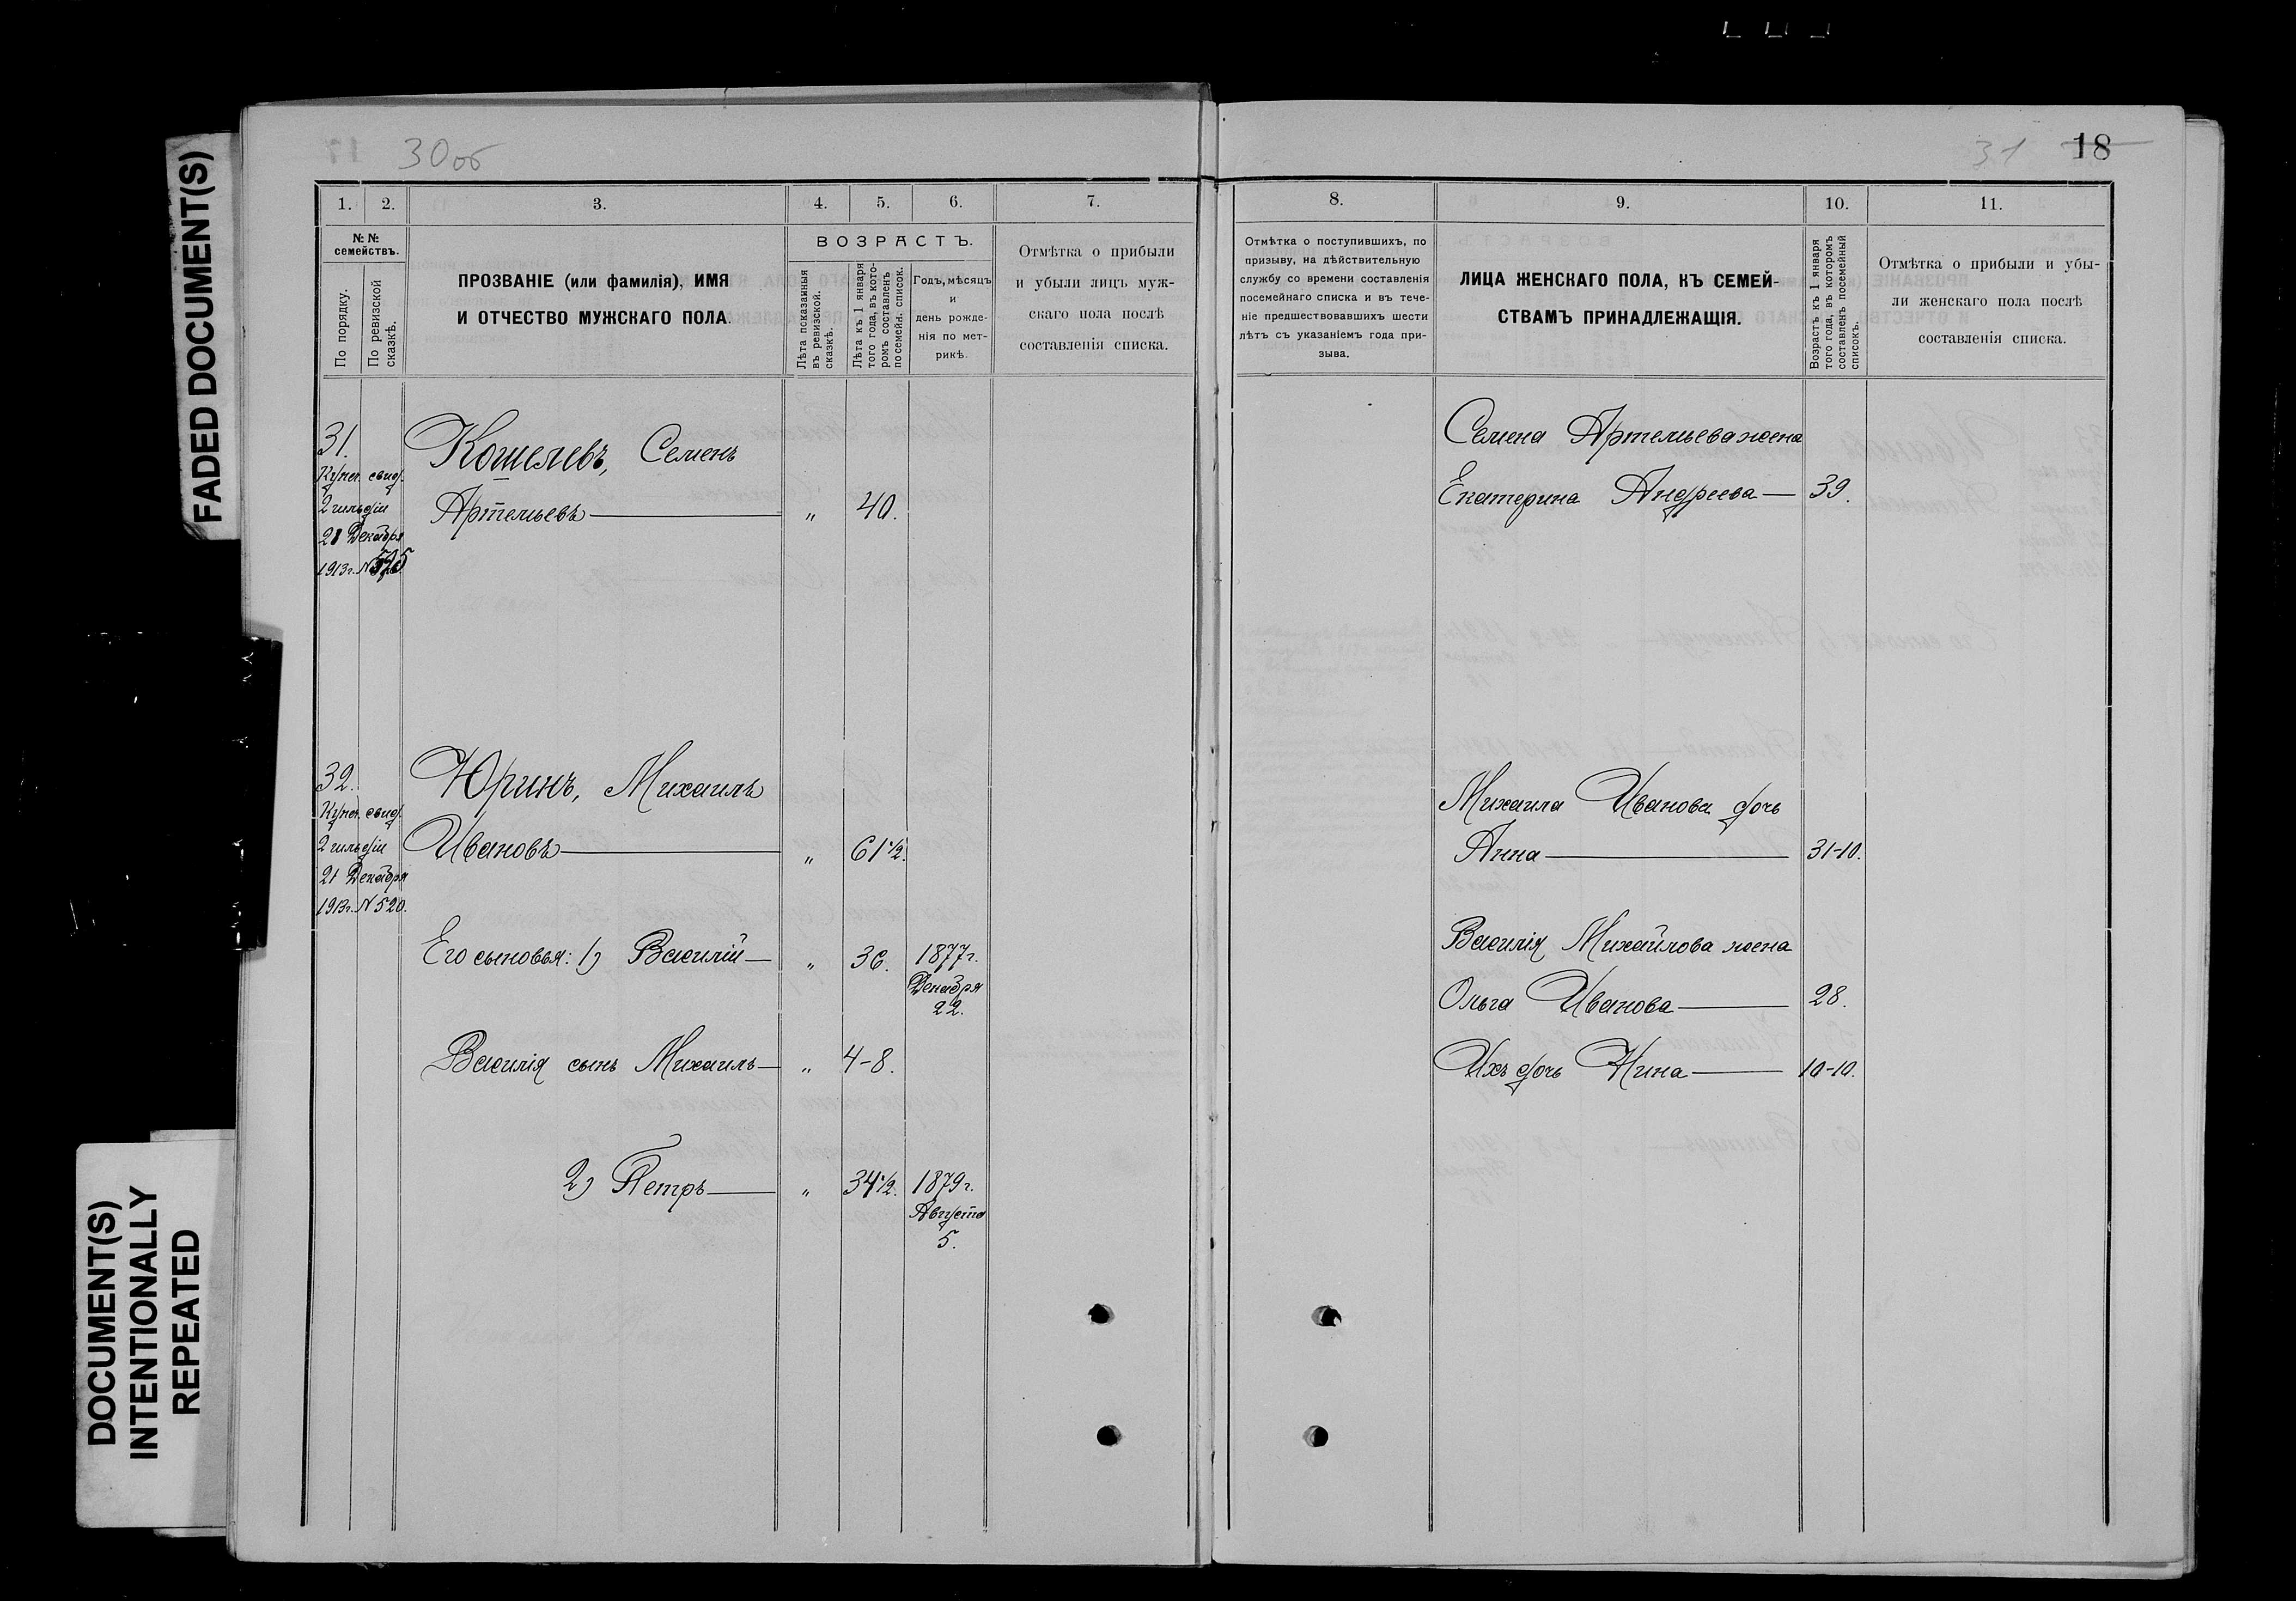 FADED DOCUMENT(S)
DOCUMENT(S)
INTENTIONALLY
REPEATED
30 об
1.
2.
3.
4.
5.
6.
7.
№ №
семействъ.
По порядку.
По ревизской
сказкѣ.
ПРОЗВАНІЕ (или фамилія), ИМЯ
И ОТЧЕСТВО МУЖСКАГО ПОЛА.
ВОЗРАСТЪ.
Лѣта показанныя
въ ревизской
сказкѣ.
Лѣта къ 1 января
того года, въ кото-
ромъ составленъ
посемейн. список.
Годъ, мѣсяцъ
и
день рожде-
нія по мет-
рикѣ.
Отмѣтка о прибыли
и убыли лицъ муж-
скаго пола послѣ
составленія списка.
31.
Купеч. свид.
2 гильдіи
21 Декабря
1913г. №
Кошелевъ, Семенъ
Артемьевъ — „ 40.
32.
Купеч. свид.
2 гильдіи
21 Декабря
1913г. № 520.
Юринъ, Михаилъ
Ивановъ — „ 61 1/2.
Его сыновья: 1) Василій — „ 36. 1877г.
Декабря
22.
Василія сынъ Михаилъ — „ 4-8.
2) Петръ — „ 34 1/2. 1879г.
Августа
5.
31 18
8.
9.
10.
11.
Отмѣтка о поступившихъ, по
призыву, на дѣйствительную
службу со времени составленія
посемейнаго списка и въ тече-
ніе предшествовавшихъ шести
лѣтъ съ указаніемъ года при-
зыва.
ЛИЦА ЖЕНСКАГО ПОЛА, КЪ СЕМЕЙ-
СТВАМЪ ПРИНАДЛЕЖАЩІЯ.
Возрастъ къ 1 января
того года, въ которомъ
составленъ посемейный
списокъ.
Отмѣтка о прибыли и убы-
ли женскаго пола послѣ
составленія списка.
Семена Артемьева жена
Екатерина Андреева — 39.
Михаила Иванова дочь
Анна — 31-10.
Василія Михайлова жена
Ольга Иванова — 28.
Ихъ дочь Нина — 10-10.